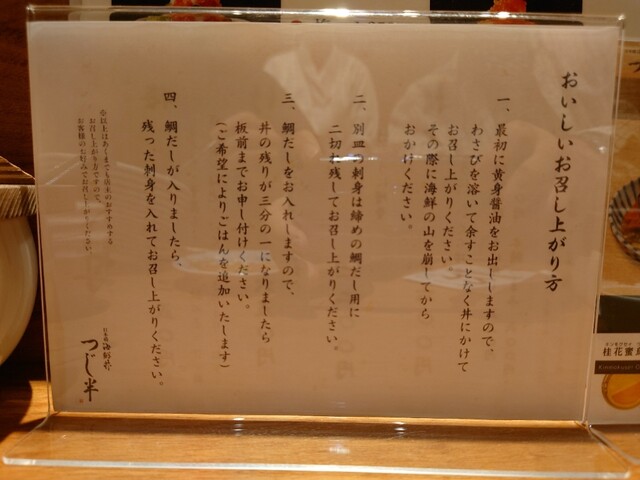 おいしいお召し上がり方
一、最初に黄身醤油をお出ししますので、
わさびを溶いて余すことなく丼にかけて
お召し上がりください。
その際に海鮮の山を崩してから
おかけください。
二、別皿の刺身は締めの鯛だし用に
二切れ残してお召し上がりください。
三、鯛だしをお入れしますので、
丼の残りが三分の一になりましたら
板前までお申し付けください。
(ご希望によりごはんを追加いたします)
四、鯛だしが入りましたら、
残った刺身を入れてお召し上がりください。
※以上はあくまでも店主のおすすめする
お召し上がり方ですので、
お客様のお好みでお召し上がりください。
日本橋海鮮丼
つじ半
桂花蜜